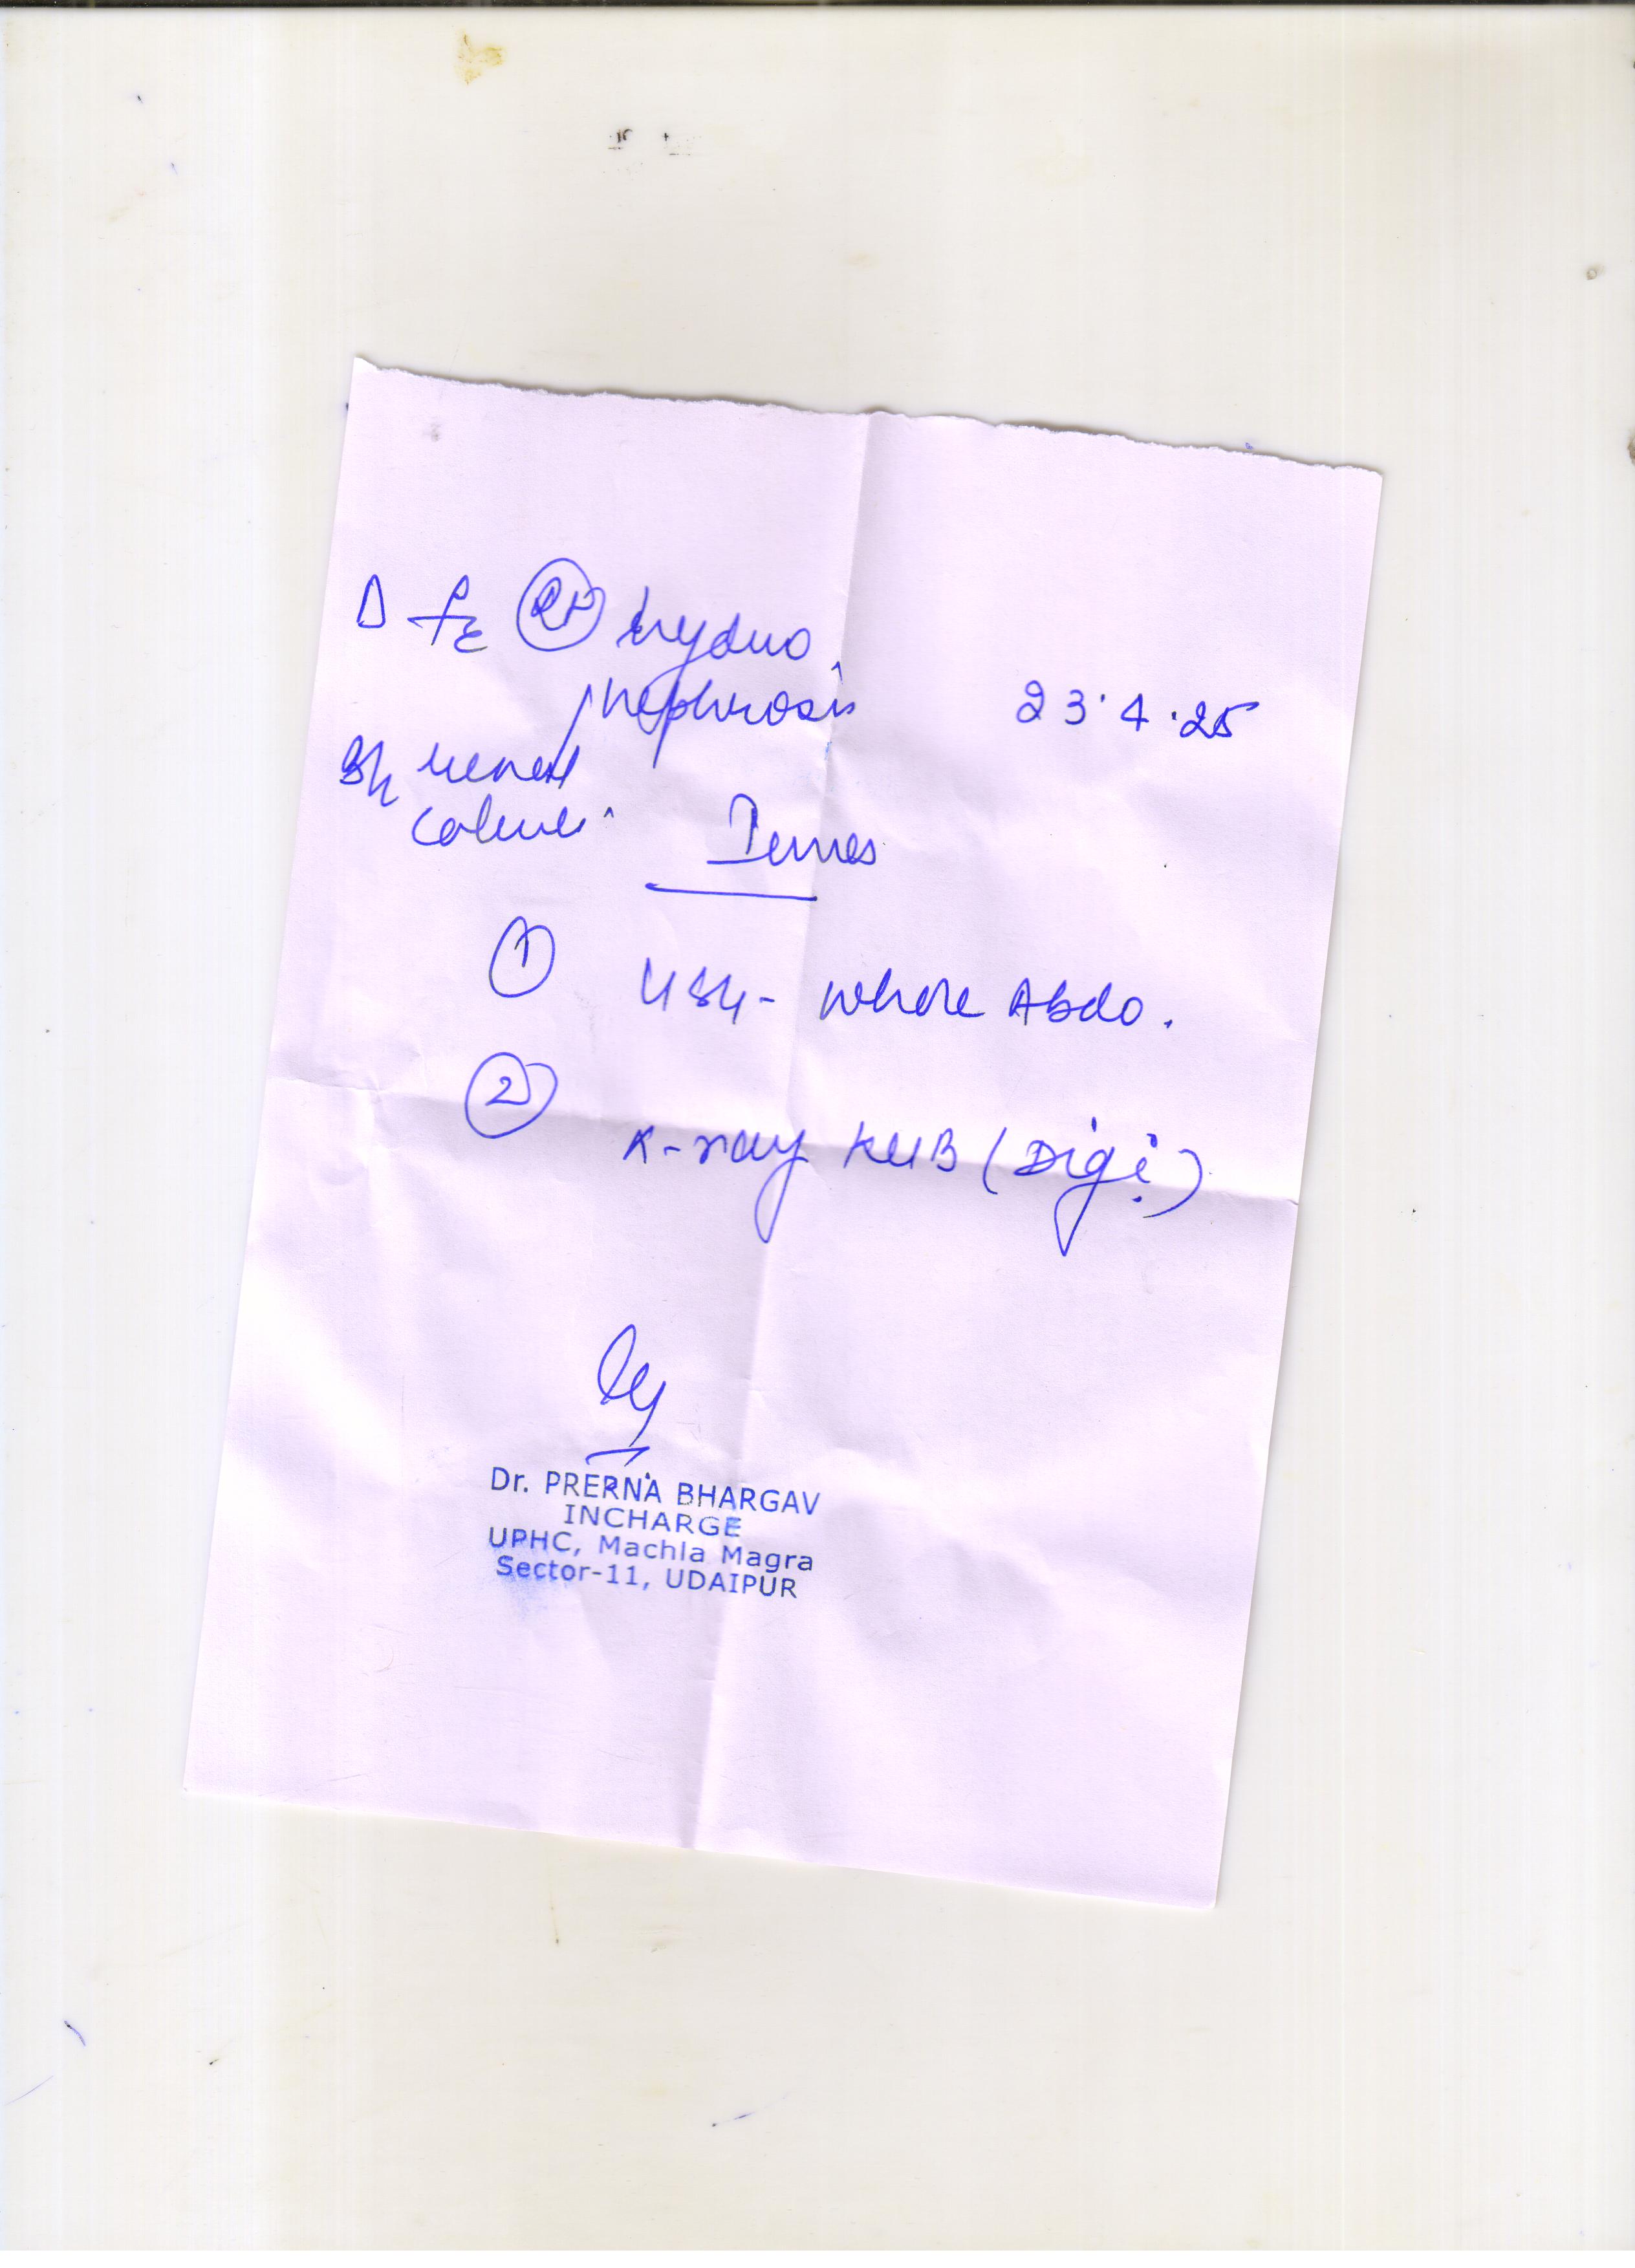 Rt hydro
nephrosis
23.4.25
B/L renal
calculi.
① USG- whole Abdo.
② X-ray KUB (Digi)
Dr. PRERNA BHARGAV
INCHARGE
UPHC, Machla Magra
Sector-11, UDAIPUR